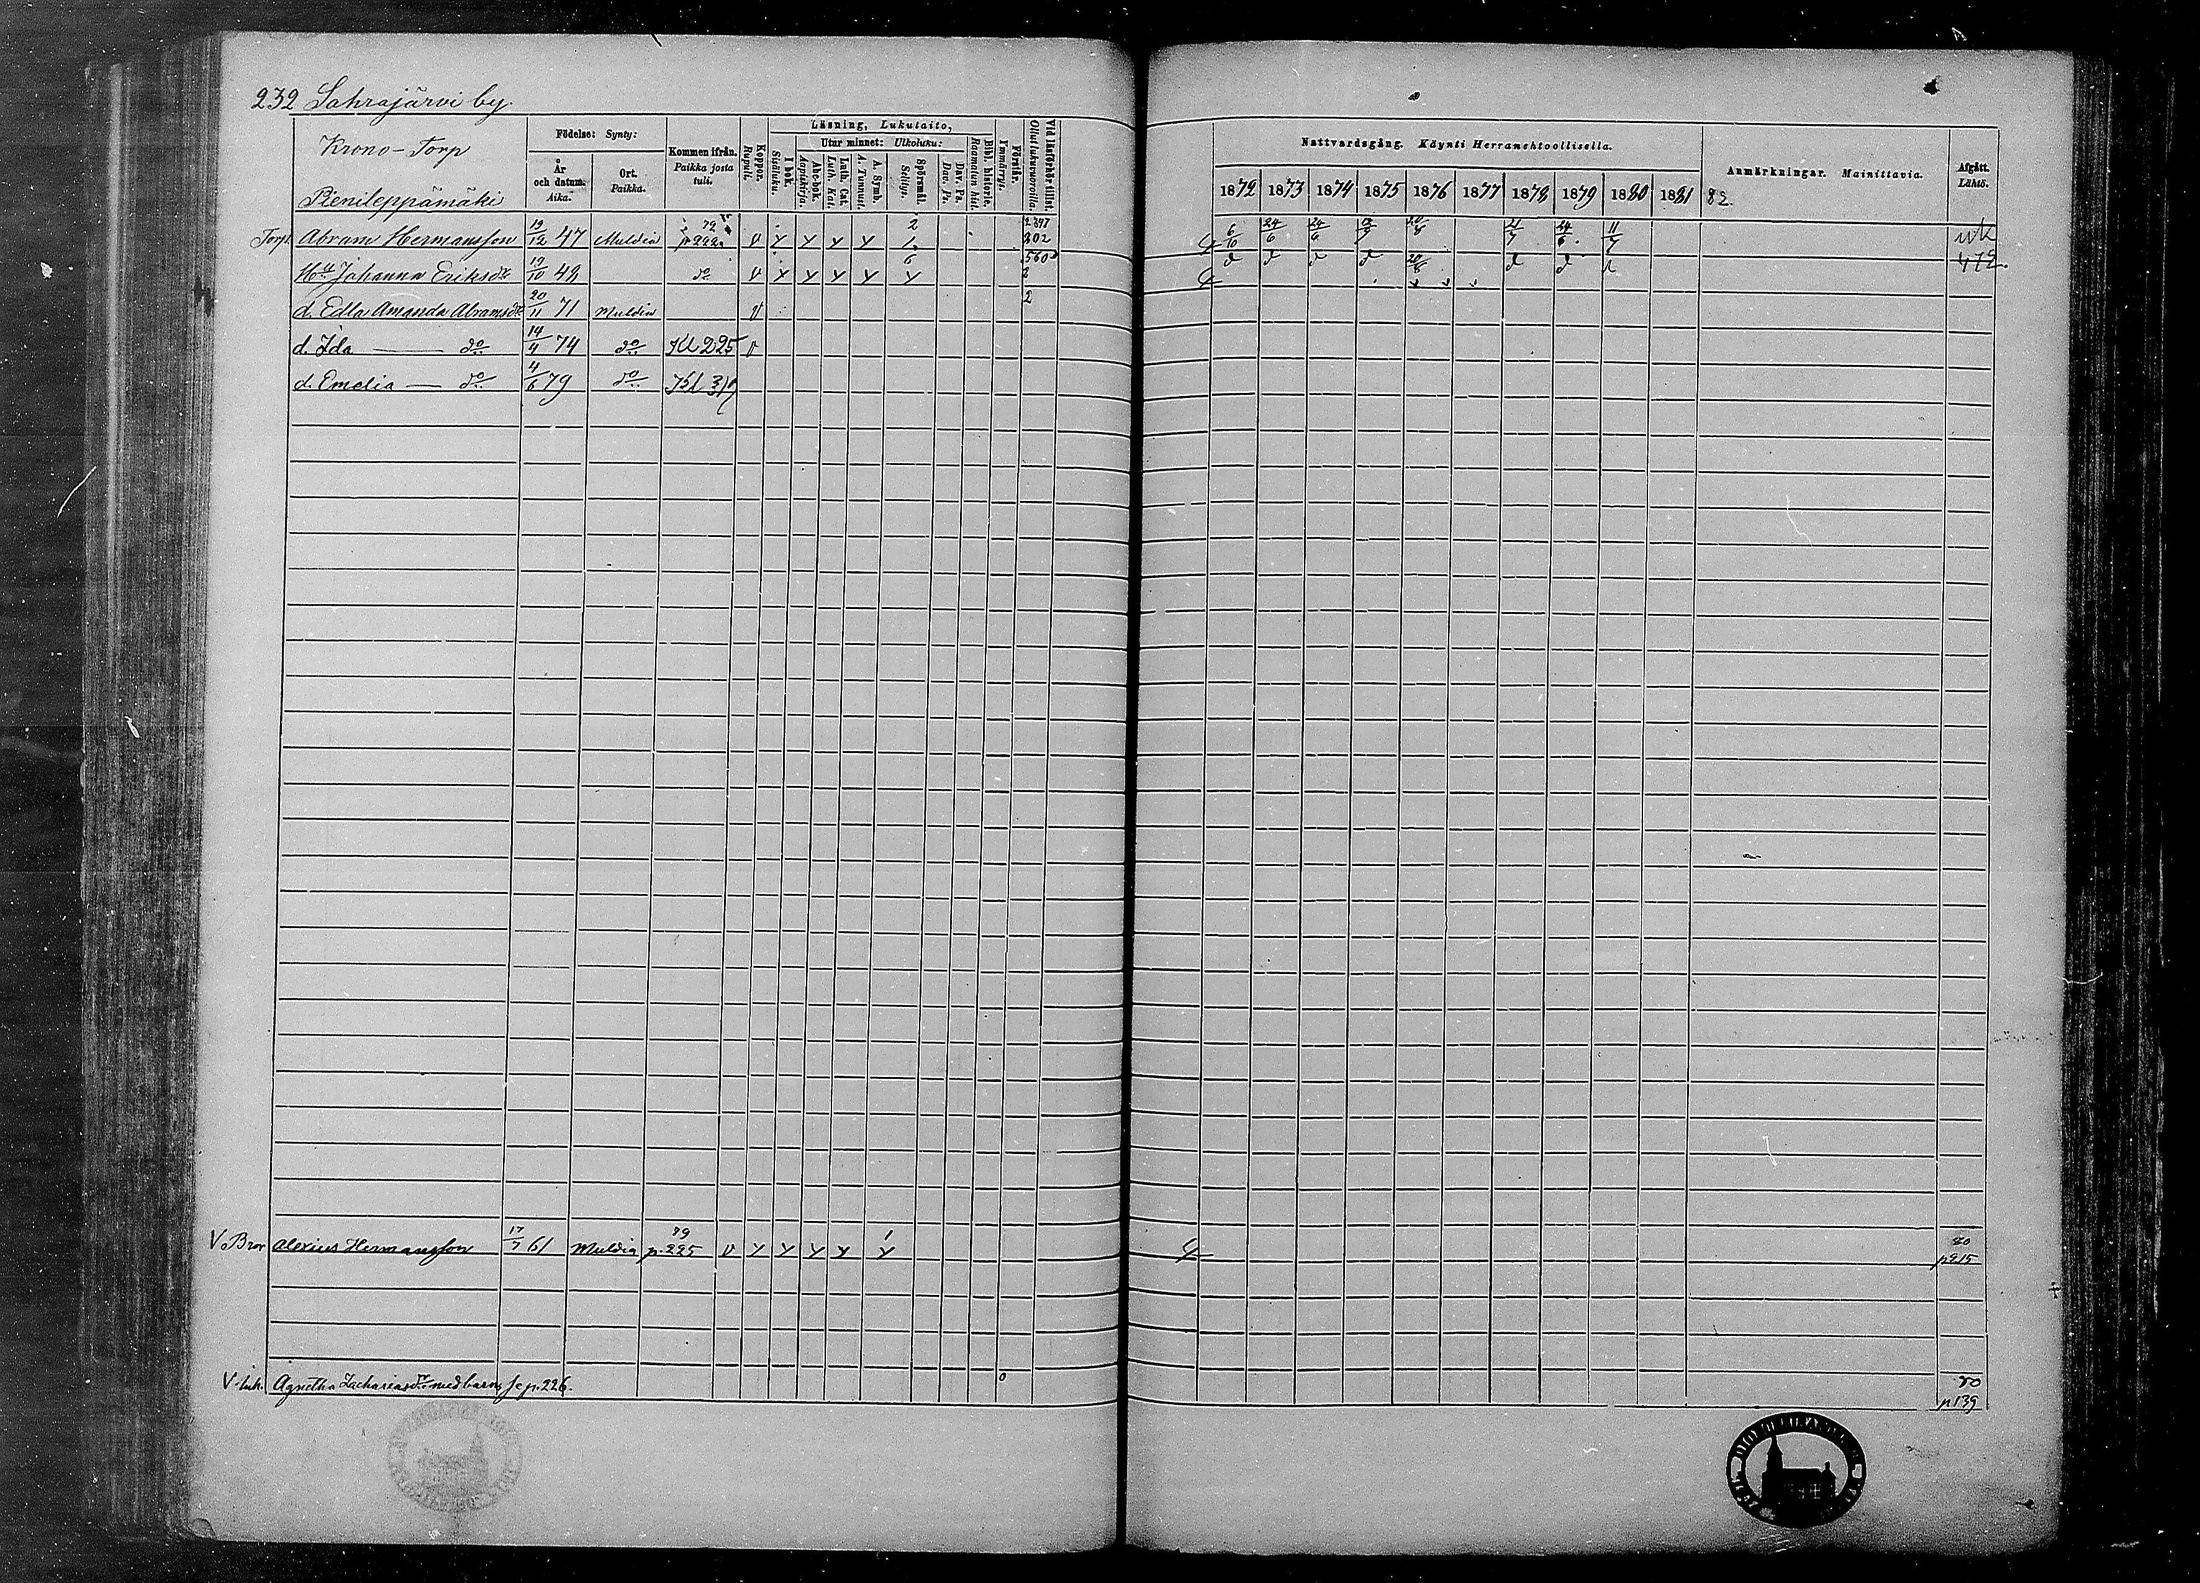 232 Sahrajärvi by.
Krono-Torp
Pienileppämäki
Födelse: Synty:
År och datum. Aika.
Ort. Paikka.
Kommen ifrån. Paikka josta tuli.
Koppor. Rupuli.
Läsning, Lukutaito,
I bok. Sisäluku.
Utur minnet: Ulkoluku:
Abc-bok. Aapiskirja.
Luth. Cat. Luth. Kat.
A. Symb. A. Tunnust.
Spörsmål. Selitys.
Dav. Ps. Dav. Ps.
Bibl. historie. Raamatun hist.
Förstår. Ymmärrys.
Vid läsförhör tillst. Ollut lukuvuorolla.
Nattvardsgång. Käynti Herranehtoollisella.
1872 1873 1874 1875 1876 1877 1878 1879 1880 1881 82.
Anmärkningar. Mainittavia.
Afgått. Lähtö.
Torp. Abram Hermansson 19/12 47 Muldia 72 p 222 v y y y y 2 1 2 347 302 6/10 24/6 24/6 20/8 21/7 24/6 11/7 uk
Hu Johanna Eriksdr 19/10 48 do v y y y y 6 y 560 2 d d d d 20/8 d d d 472.
d. Edla Amanda Abramsdr 20/11 71 Muldia v 2
d. Ida — do 14/4 74 do Kl 225 v
d. Emelia — do 4/6 79 do Kl 319
V. Bror Alexius Hermansson 17/7 61 Muldia 79 p. 225 v y y y y 1 y 80 p 215
V. inh. Agnetha Zachariasdr med barn, se p. 226. 0 80 p 139